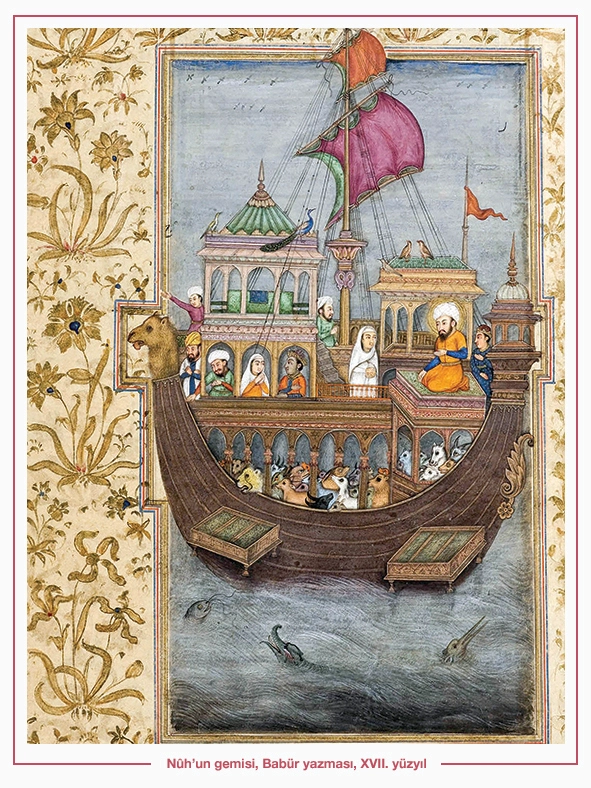 Nûh’un gemisi, Babür yazması, XVII. yüzyıl